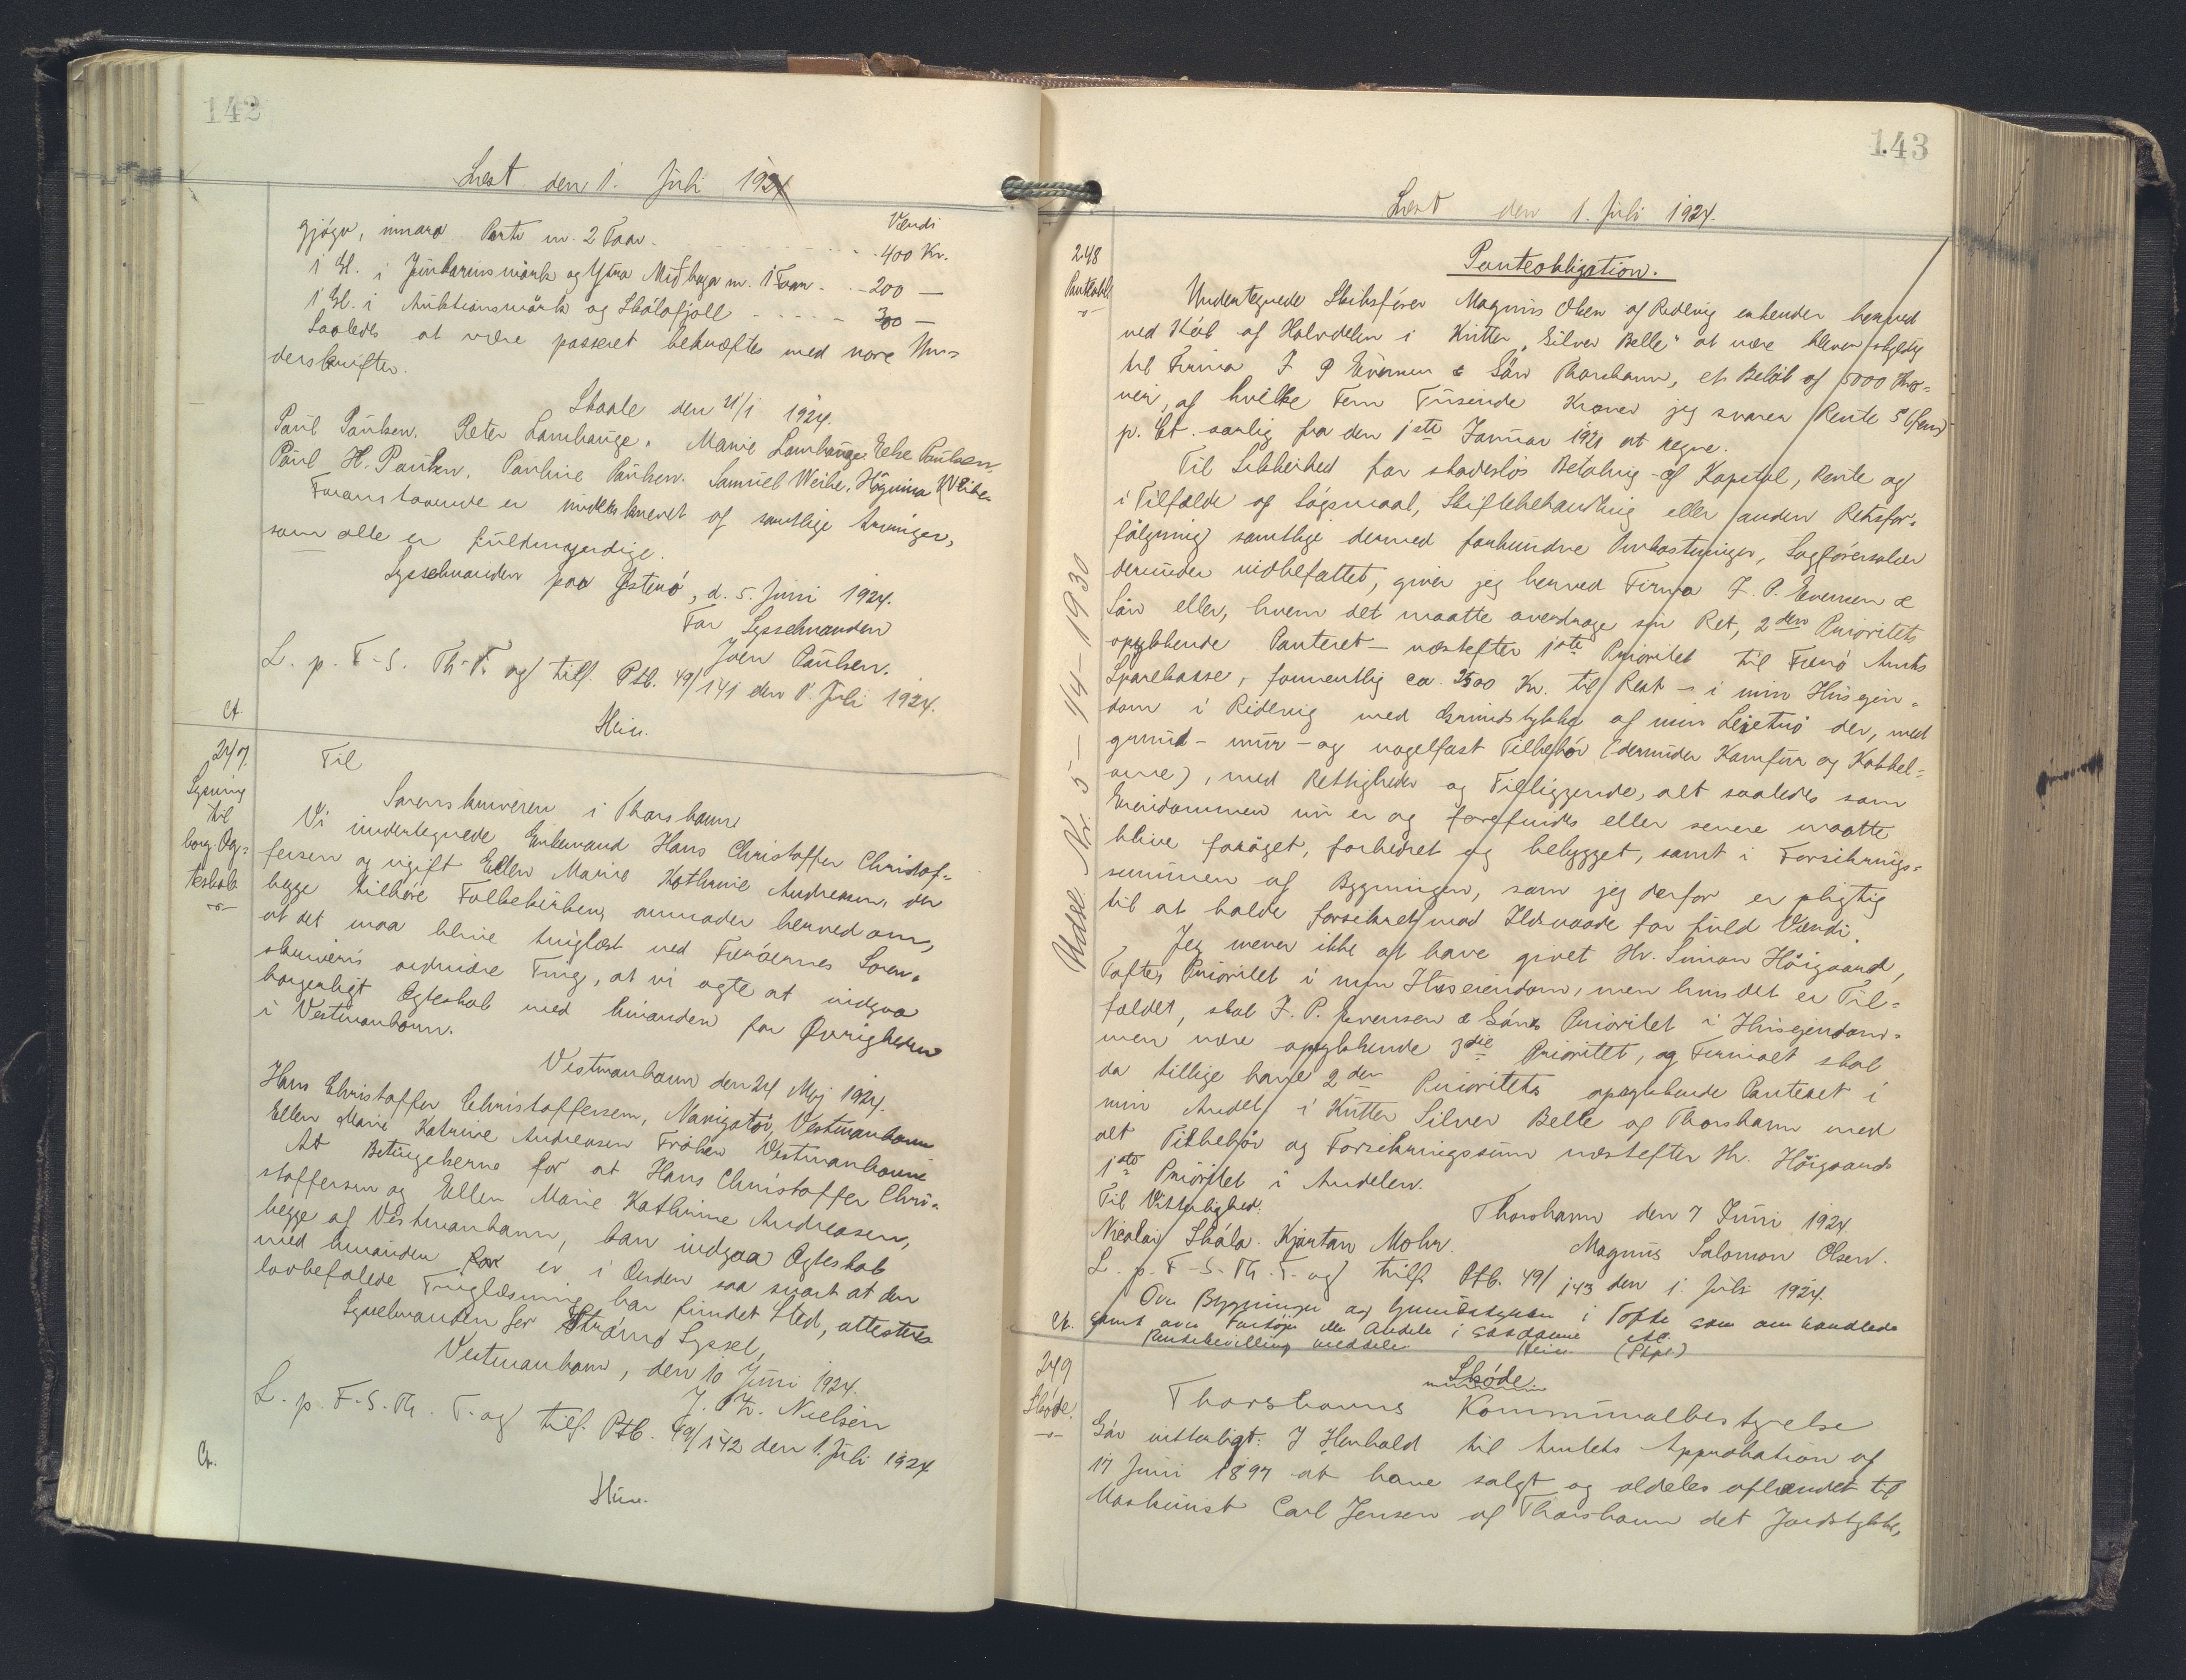 142
Læst den 1. Juli 1924
Værdi
gjógv, innara Parti m. 2 Faar. 400 Kr.
1 Gl. i Junkarinsmørk og Ytra Miðhaga m. 1 Faar. 200 —
1 Gl. i Auktionsmørk og Skálafjall 300 —
Saaledes at være passeret bekræftes med vore Un=
derskrifter.
Skaale den 21/1 1924.
Paul Paulsen. Peter Lamhauge. Marie Lamhauge. Else Paulsen.
Paul H. Paulsen. Pauline Paulsen. Samuel Weihe. Høgnina Weihe.
Foranstaaende er underskrevet af samtlige Arvinger,
som alle er fuldmyndige.
Sysselmanden paa Østerø, d. 5. Juni 1924.
For Sysselmanden
Joen Paulsen.
L. p. F-S. Th-T. og tilf. Ptb. 49/141 den 1. Juli 1924.
Heise.
Ct.
247
Lysning
til
borg. Æg=
teskab
Til
Sorenskriveren i Thorshavn
Vi undertegnede Enkemand Hans Christoffer Christof=
fersen og ugift Ellen Marie Kathrine Andreasen, der
begge tilhøre Folkekirken, anmoder herved om,
at det maa blive tinglæst ved Færøernes Soren=
skriveris ordinære Ting, at vi agte at indgaa
borgerligt Ægteskab med hinanden for Øvrigheden
i Vestmanhavn.
Vestmanhavn den 24 Maj 1924.
Hans Christoffer Christoffersen, Navigatør, Vestmanhavn
Ellen Marie Katrine Andreasen Frøken Vestmanhavn
At Betingelserne for at Hans Christoffer Chri=
stoffersen og Ellen Marie Kathrine Andreasen,
begge af Vestmanhavn, kan indgaa Ægteskab
med hinanden er i Orden saa snart at den
lovbefalede Tinglæsning har fundet Sted, attesteres
Sysselmanden for Strømø Syssel,
Vestmanhavn, den 10 Juni 1924.
J. Nielsen
L. p. F-S. Th. T. og tilf. Ptb. 49/142 den 1. Juli 1924
Ct.
Heise.
143
Læst den 1. Juli 1924.
248
Panteobl.
Panteobligation.
Undertegnede Skibsfører Magnus Olsen af Ridevig erkender herved
ved Køb af Halvdelen i Kutter "Silver Belle" at være bleven skyldig
til Firma J P Evensen & Søn Thorshavn, et Beløb af 5000 Kro=
ner, af hvilke Fem Tusende Kroner jeg svarer Rente 5 (fem)
p. Ct. aarlig fra den 1ste Januar 1921 at regne.
Til Sikkerhed for skadesløs Betaling af Kapital, Rente og
i Tilfælde af Søgsmaal, Skiftebehandling eller anden Retsfor=
følgning samtlige dermed forbundne Omkostninger, Sagførersalær
derunder indbefattet, giver jeg herved Firma J. P. Evensen &
Søn eller, hvem det maatte overdrage sin Ret, 2den Prioritets
oprykkende Panteret — næstefter 1ste Prioritet til Færø Amts
Sparekasse, formentlig ca. 3500 Kr. til Rest — i min Husejen=
dom i Ridevig med Grundstykke af min Lejetrø der, med
grund- mur- og nagelfast Tilbehør (derunder Komfur og Kakkel=
ovne), med Rettigheder og Tilliggende, alt saaledes som
Ejendommen nu er og forefindes eller senere maatte
blive forøget, forbedret og bebygget, samt i Forsikrings=
summen af Bygningen, som jeg derfor er pligtig
til at holde forsikret mod Ildsvaade for fuld Værdi.
Jeg mener ikke at have givet Hr. Simon Höigaard,
Tofte, Prioritet i min Huseiendom, men hvis det er Til=
fældet, skal J. P. Evensen & Søns Prioritet i Husejendom=
men være oprykkende 3die Prioritet, og Firmaet skal
da tillige have 2den Prioritets oprykkende Panteret i
min Andel i Kutter Silver Belle af Thorshavn med
alt Tilbehør og Forsikringssum næstefter Hr. Höigaards
1ste Prioritet i Andelen.
Til Vitterlighed.
Thorshavn den 7 Juni 1924
Nicolai Skála. Kjartan Mohr. Magnus Salomon Olsen.
L. p. F-S. Th. T. og tilf. Ptb. 49/143 den 1. Juli 1924.
Over Bygninger og Grundstykker i Tofte som om handlede
samt over Fartøjer eller Andele i saadanne
Pantebevilling meddeles. Heise.
Ct.
Udsl. Nr. 5 — 1/4 — 1930
249
Skøde.
Skøde
Thorshavns Kommunalbestyrelse
Gör vitterligt: I Henhold til Amtets Approbation af
17 Juni 1897 at have solgt og aldeles afhændet til
Maskinist Carl Jensen af Thorshavn det Jordstykke,